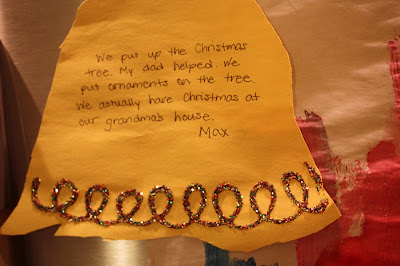 We put up the Christmas
tree. My dad helped. We
put ornaments on the tree.
We actually have Christmas at
our grandma's house.
Max